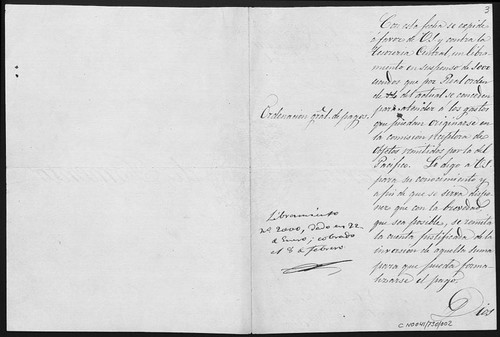 3
Con esta fecha se expide
á favor de V.S. y contra la
Tesoreria Central, un libra-
miento en suspenso de 3000
escudos que por Real orden
de del actual se conceden
para atender á los gastos
que puedan originarse en
la comision receptora de
objetos remitidos por la del
Pacífico. Lo digo a V.S.
para su conocimiento y
a fin de que se sirva dispo-
ner que con la brevedad
que sea posible, se remita
la cuenta justificada de la
inversion de aquella suma
para que pueda forma-
lizarse el pago.
Dios
Ordenacion gral. de pagos.
Libramiento
nº 2000, dado en 22
de Enero; cobrado
el 8 de febrero
CN0041/730/002